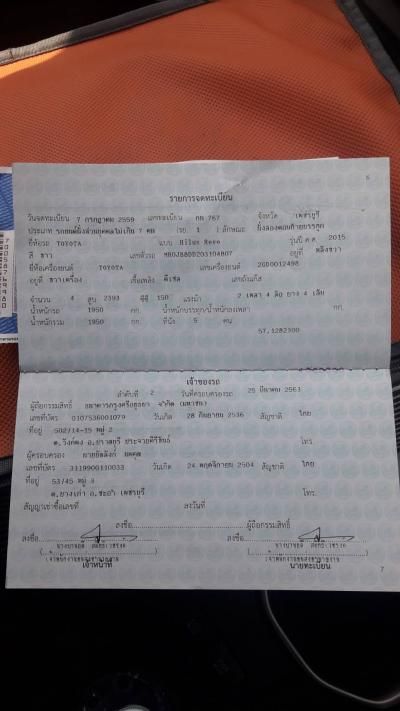 6
รายการจดทะเบียน
วันจดทะเบียน 7 กรกฎาคม 2559 เลขทะเบียน กท 767 จังหวัด เพชรบุรี
ประเภท รถยนต์นั่งส่วนบุคคลไม่เกิน 7 คน (รย. 1 ) ลักษณะ นั่งสองตอนท้ายบรรทุก
ยี่ห้อรถ TOYOTA แบบ Hilux Revo รุ่นปี ค.ศ. 2015
สี ขาว เลขตัวรถ อยู่ที่
ยี่ห้อเครื่องยนต์ TOYOTA เลขเครื่องยนต์ 2GD0012498
อยู่ที่ ขวาเครื่อง เชื้อเพลิง ดีเซล เลขถังแก๊ส
จำนวน 4 สูบ 2393 ซีซี 150 แรงม้า 2 เพลา 4 ล้อ ยาง 4 เส้น
น้ำหนักรถ 1950 กก. น้ำหนักบรรทุก/น้ำหนักลงเพลา กก.
น้ำหนักรวม 1950 กก. ที่นั่ง 5 คน
57.1282300
เจ้าของรถ
ลำดับที่ 2 วันที่ครอบครองรถ 25 มีนาคม 2563
ผู้ถือกรรมสิทธิ์ ธนาคารกรุงศรีอยุธยา จำกัด (มหาชน)
เลขที่บัตร 0107536001079 วันเกิด 28 กันยายน 2536 สัญชาติ ไทย
ที่อยู่ 502/14-15 หมู่ 2
ต.วังก์พง อ.ปราณบุรี ประจวบคีรีขันธ์ โทร.
ผู้ครอบครอง
เลขที่บัตร 3119900110033 วันเกิด 24 พฤศจิกายน 2504 สัญชาติ ไทย
ที่อยู่ 53/45 หมู่
อ.ชะอำ เพชรบุรี โทร.
สัญญาเช่าซื้อเลขที่ ลงวันที่
ลงชื่อ ผู้ถือกรรมสิทธิ์
ลงชื่อ ลงชื่อ
เจ้าหน้าที่ นายทะเบียน
7